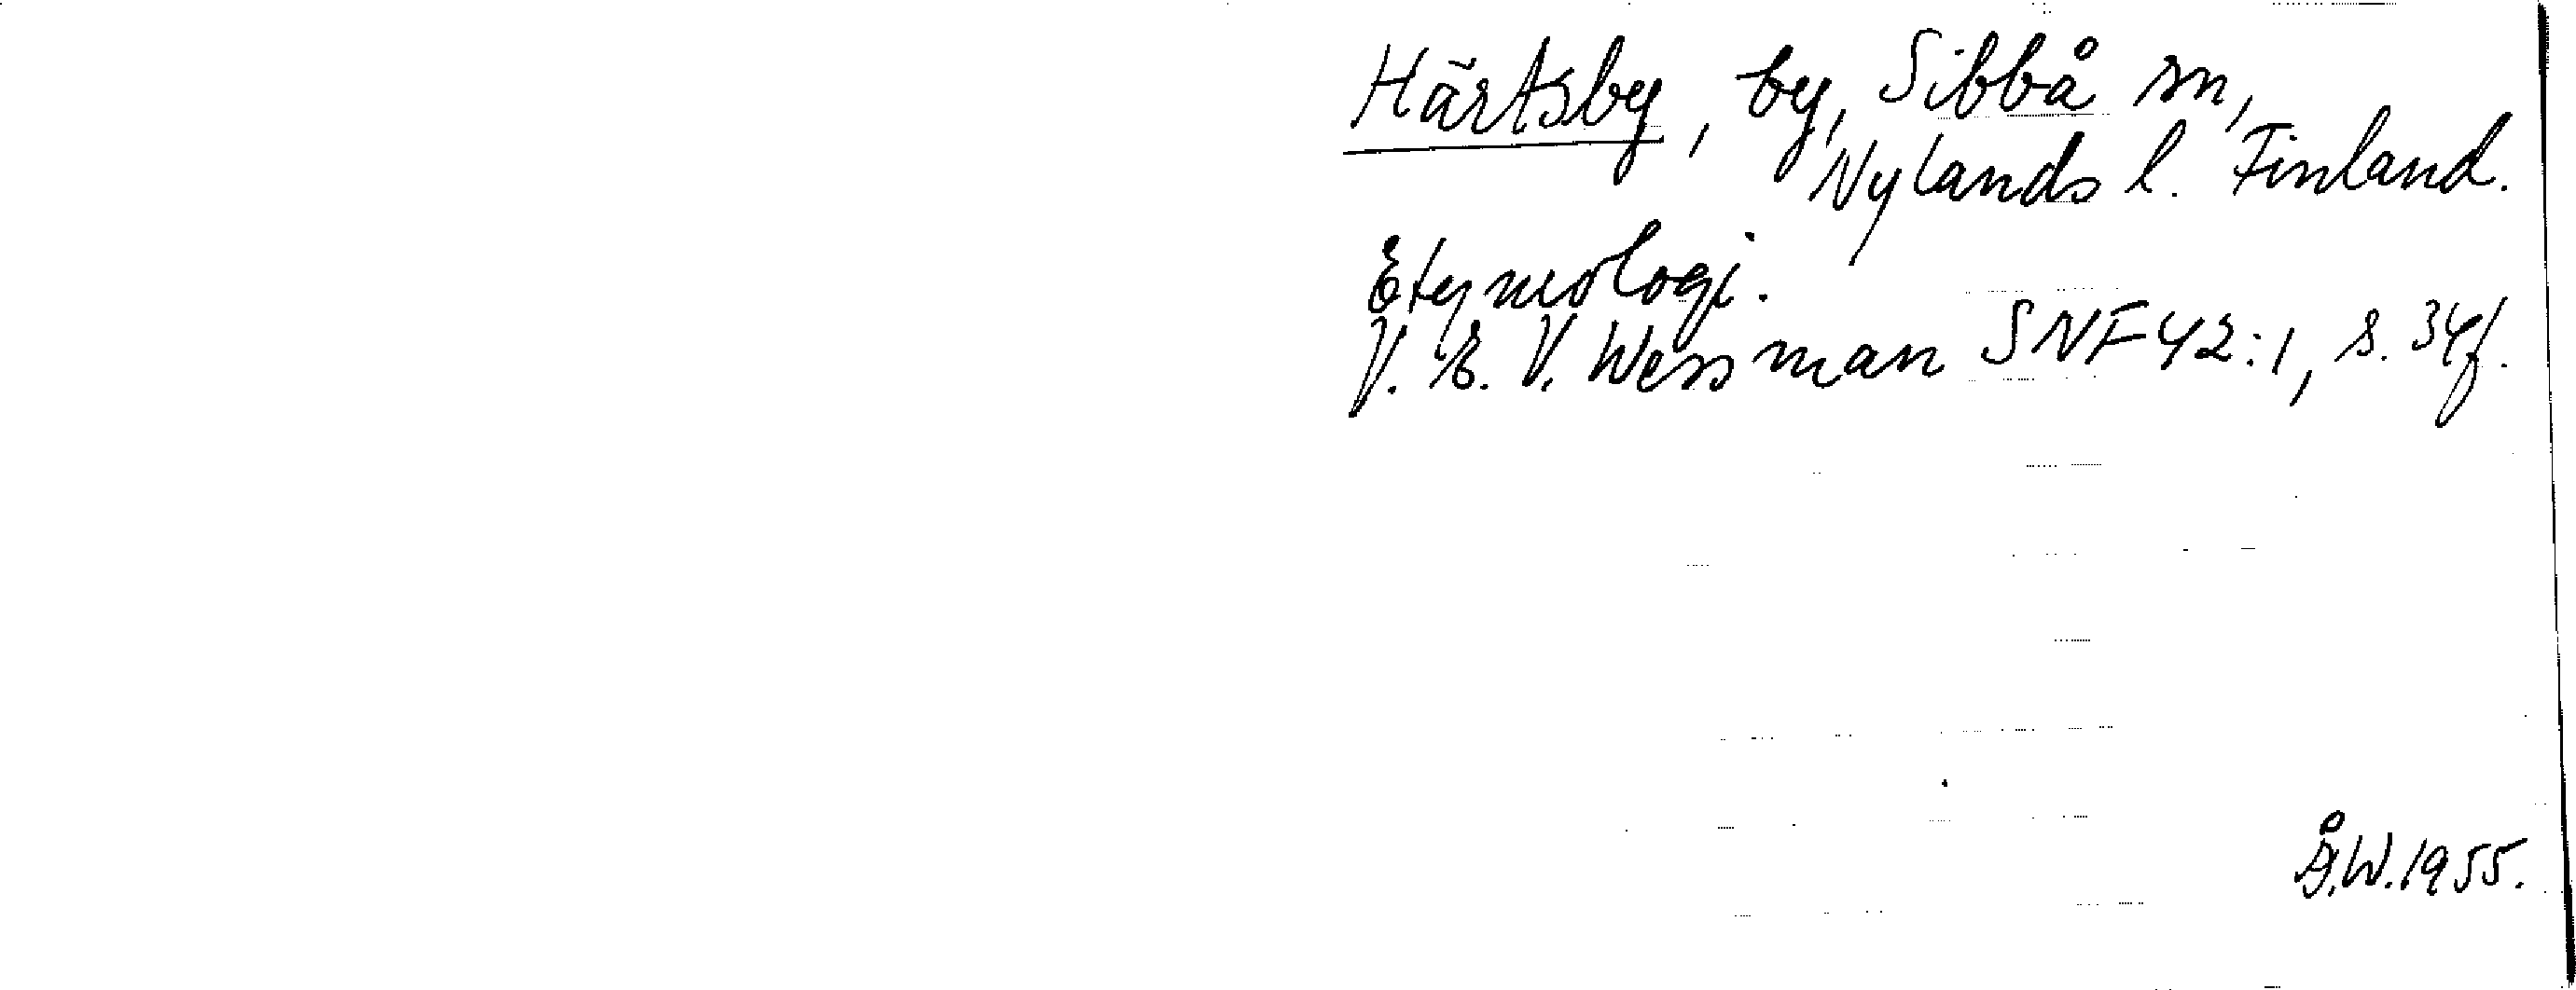 Härtsby, by, Sibbå sn,
Nylands l. Finland.
Etymologi.
V. E. V. Wessman SNF 42:1, s. 34f.
Å.W. 1955.